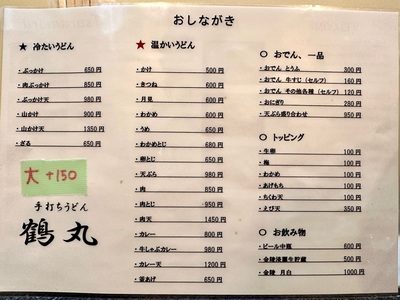 おしながき
★ 冷たいうどん
・ぶっかけ 650 円
・肉ぶっかけ 850 円
・ぶっかけ天 980 円
・山かけ 900 円
・山かけ天 1350 円
・ざる 650 円
大 +150
手打ちうどん
鶴丸
★ 温かいうどん
・かけ 500 円
・きつね 600 円
・月見 600 円
・わかめ 600 円
・うめ 650 円
・わかめとじ 680 円
・卵とじ 650 円
・天ぷら 980 円
・肉 850 円
・肉とじ 950 円
・肉天 1450 円
・カレー 800 円
・牛しゃぶカレー 980 円
・カレー天 1200 円
・釜あげ 650 円
○ おでん、一品
・おでん とうふ 300 円
・おでん 牛すじ (セルフ) 160 円
・おでん その他各種 (セルフ) 120 円
・おにぎり 280 円
・天ぷら盛り合わせ 950 円
○ トッピング
・生卵 100 円
・梅 100 円
・わかめ 100 円
・あげもち 100 円
・ちくわ天 100 円
・えび天 350 円
○ お飲み物
・ビール中瓶 600 円
・金陵 500 円
・金陵 月白 1000 円